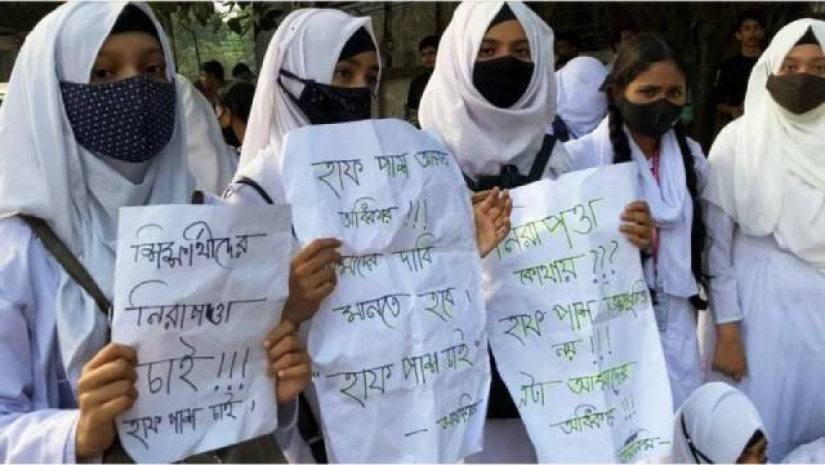 শিক্ষার্থীদের
নিরাপত্তা
চাই!!!
হাফ পাশ চাই।
হাফ পাশ আমার
অধিকার!!!
দাবি
মানতে হবে।
"হাফ পাশ চাই"
নিরাপত্তা
কোথায়???
হাফ পাশ
নয়!!!
এটা আমাদের
অধিকার!!!